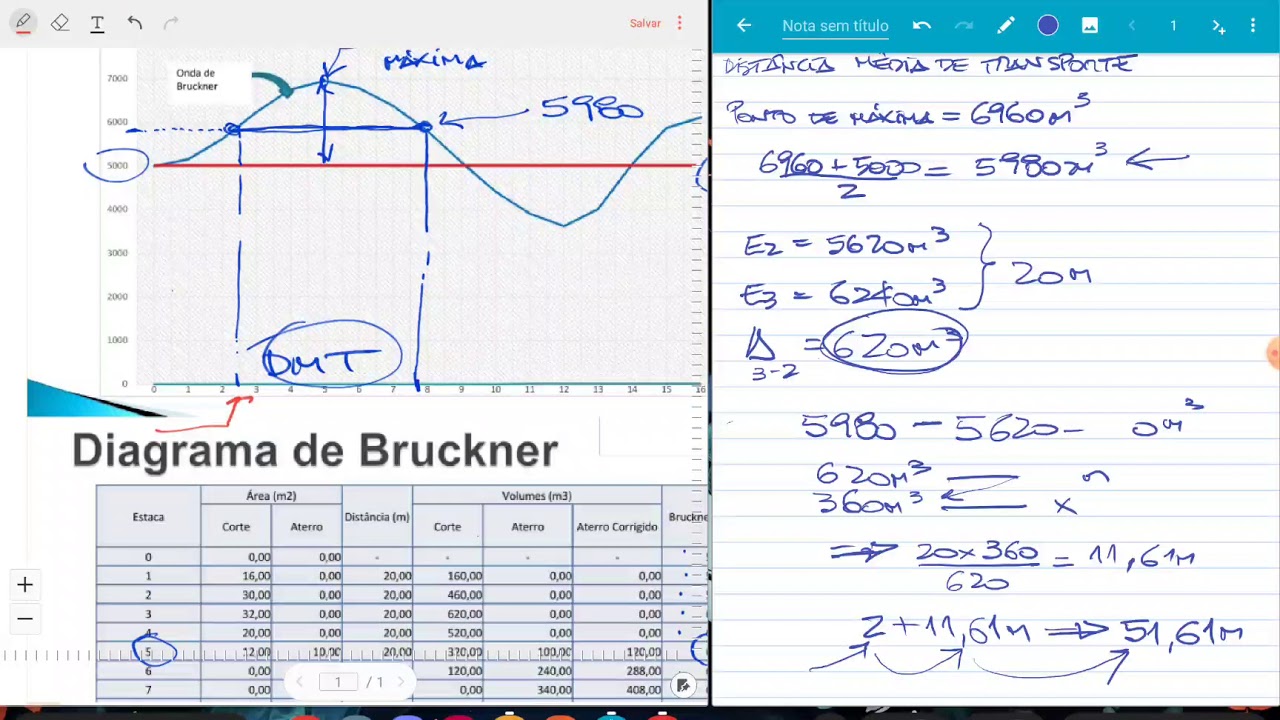 Salvar
Onda de
Bruckner
MÁXIMA
5980
7000
6000
5000
4000
3000
2000
1000
0
DMT
0 1 2 3 4 5 6 7 8 9 10 11 12 13 14 15 16
Diagrama de Bruckner
Estaca Área (m2) Distância (m) Volumes (m3)
Corte Aterro Corte Aterro Aterro Corrigido
0 0,00 0,00 - - - -
1 16,00 0,00 20,00 160,00 0,00 0,00
2 30,00 0,00 20,00 460,00 0,00 0,00
3 32,00 0,00 20,00 620,00 0,00 0,00
4 20,00 0,00 20,00 520,00 0,00 0,00
5 12,00 10,00 20,00 320,00 100,00 120,00
6 0,00 120,00 240,00 288,00
7 0,00 0,00 340,00 408,00
1 / 1
Nota sem título
1
DISTÂNCIA MÉDIA DE TRANSPORTE
PONTO DE MÁXIMA = 6960 m³
6960 + 5000 = 5980 m³
2
E2 = 5620 m³
E3 = 6240 m³
20 m
Δ = 620 m³
3-2
5980 - 5620 - 0 m³
620 m³
360 m³ x
20 x 360 = 11,61 m
620
2 + 11,61 m ⇒ 51,61 m